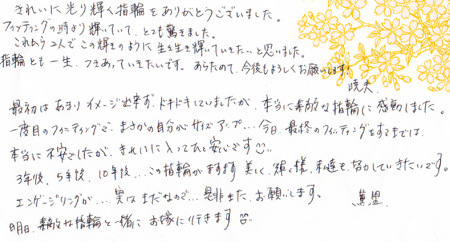 きれいに光り輝く指輪をありがとうございました。
フィッティングの時より輝いていて、とても驚きました。
これから2人でこの輝きのように生き生き輝いていきたいと思いました。
指輪とも一生、つきあっていきたいです。あらためて、今後もよろしくお願いします!
最初はあまりイメージ出来ず、ドキドキしていましたが、本当に素敵な指輪に感動しました。
一度目のフィッティングで、まさかの自分がサイズアップ…今日、最終のフィッティングをするまでは、
本当に不安でしたが、きれいに入ってひと安心です
3年後、5年後、10年後…この指輪がますます美しく、輝く様、私達も、努力していきたいです。
エンゲージリングが…実はまだなので…是非また、お願いします。
明日、素敵な指輪と一緒に お嫁に行きます